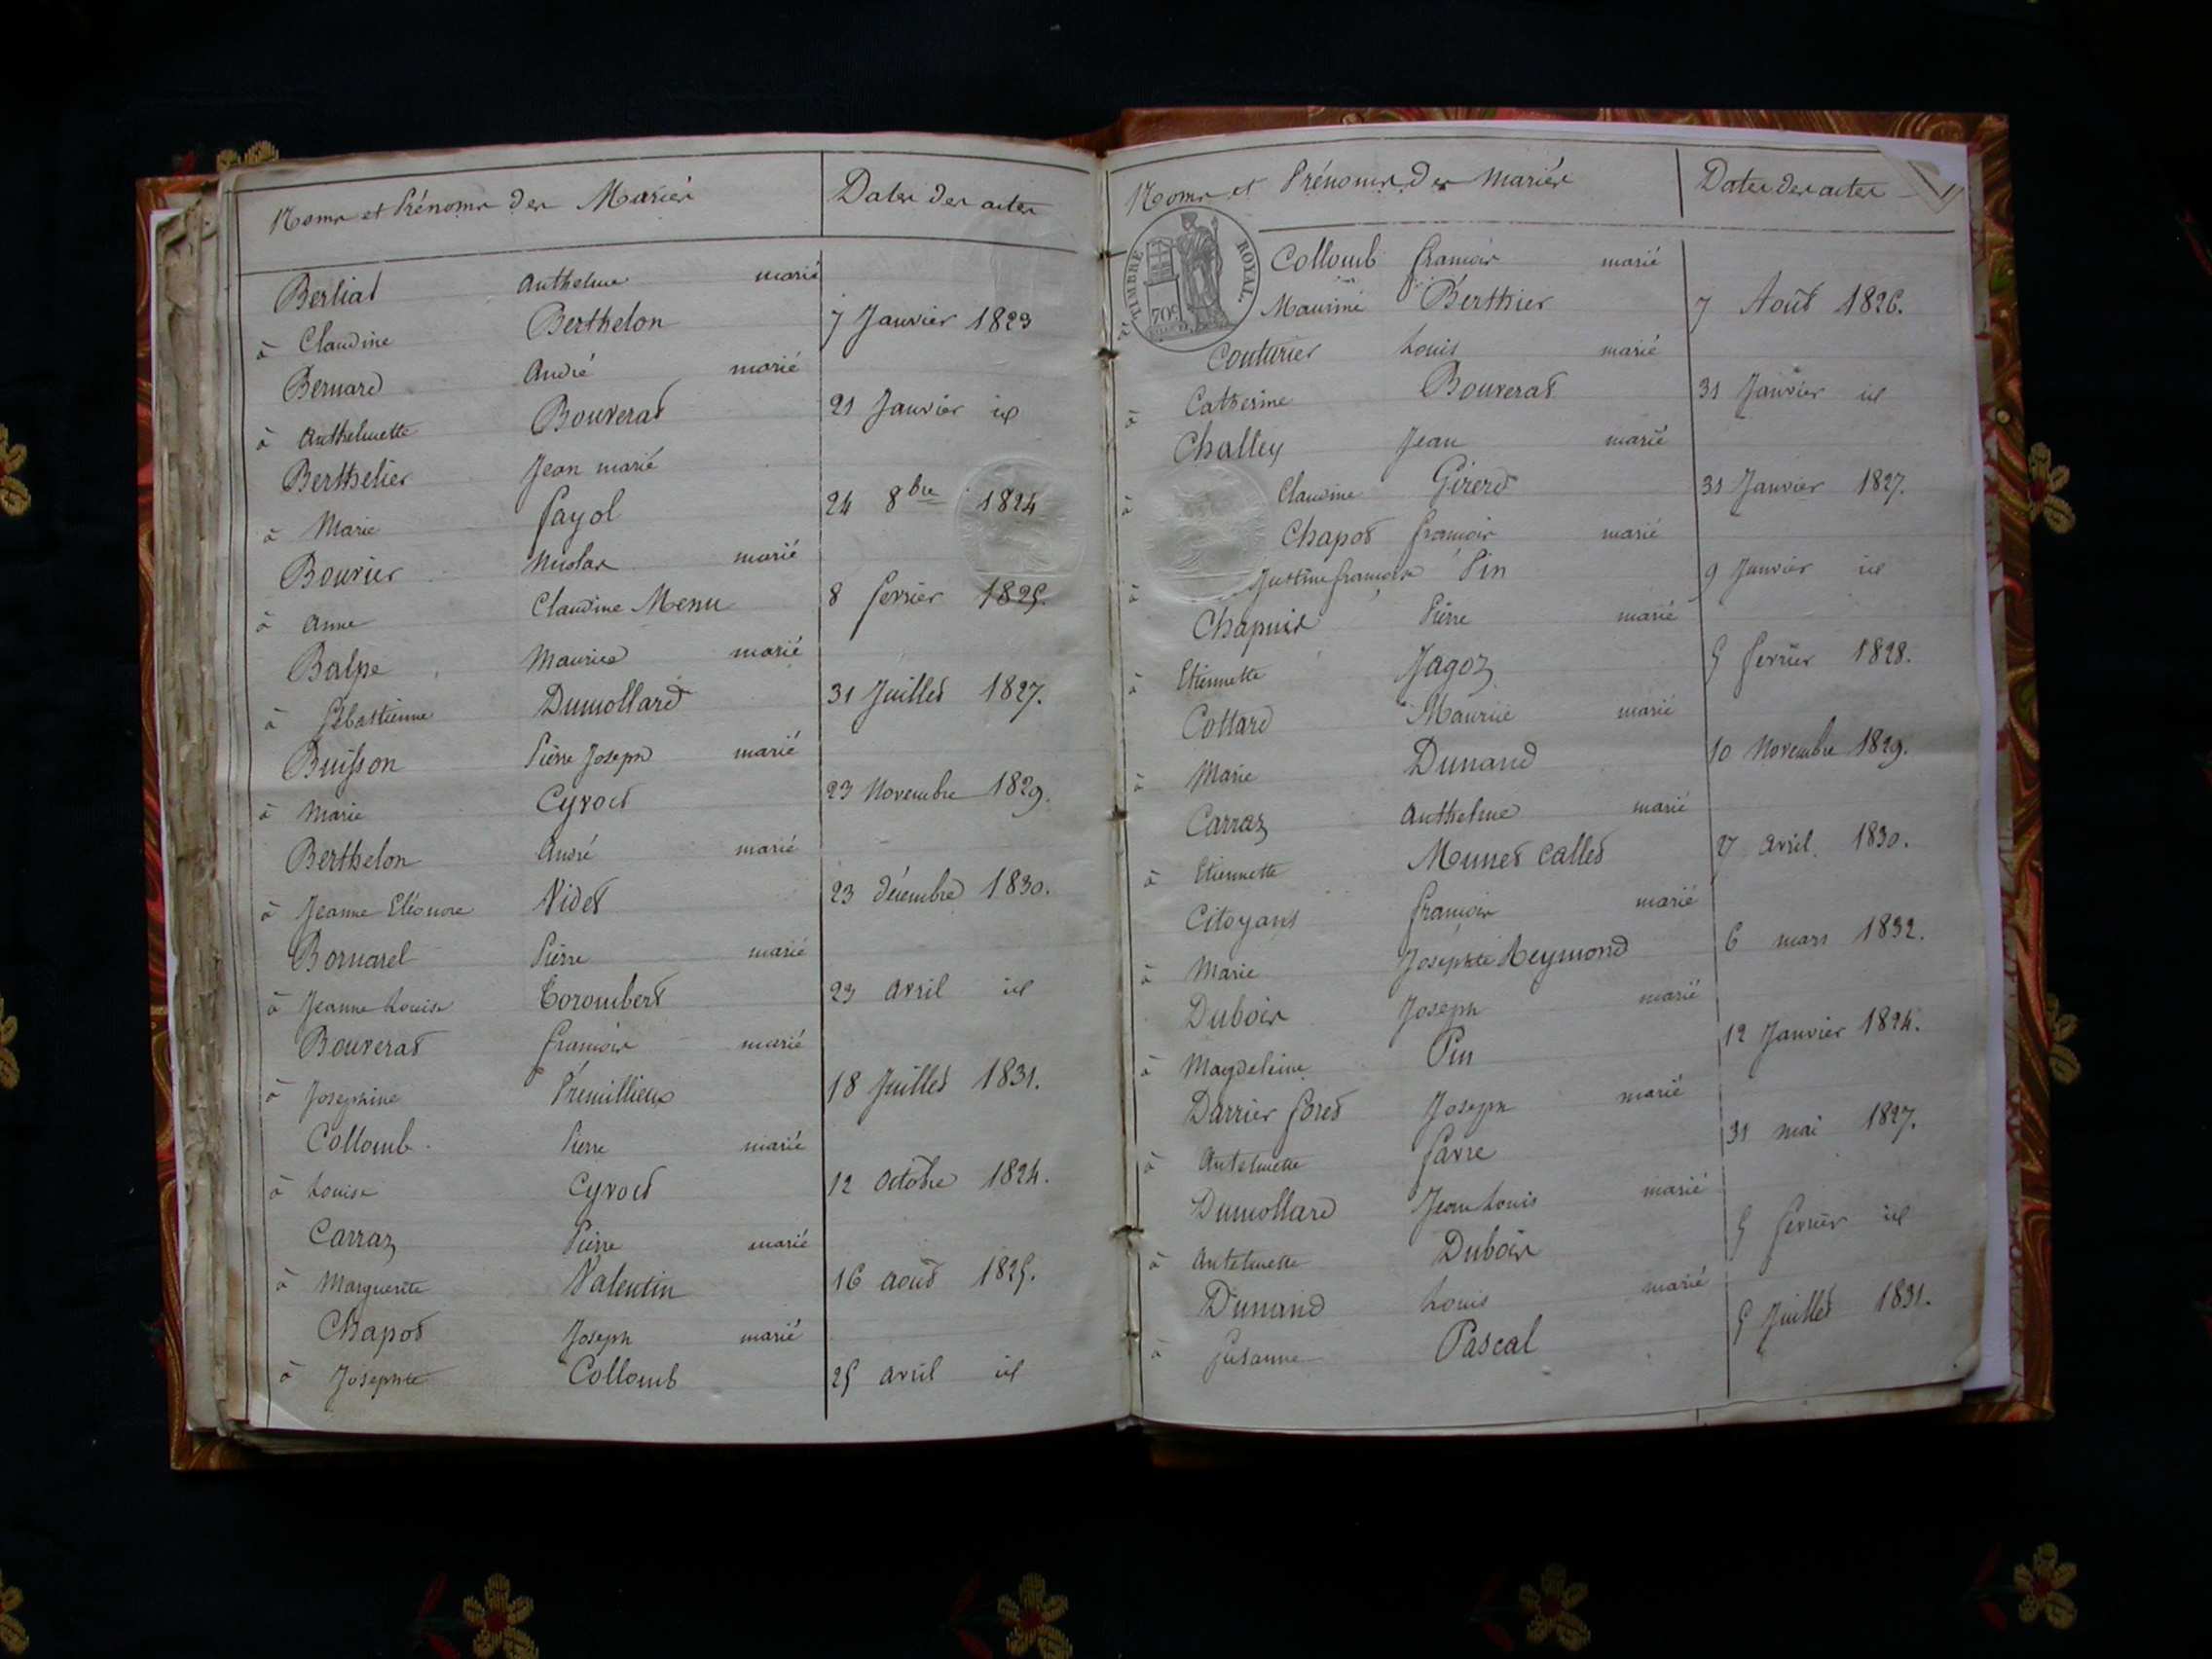 Noms et Prénoms des Mariés Dates des actes
Berliat Anthelme marié
à Claudine Berthelon 7 Janvier 1823
Bernard André marié
à Anthelmette Bouverat 21 Janvier id
Berthelier Jean marié
à Marie Fayol 24 8bre 1824
Bouvier Nicolas marié
à Anne Claudine Menu 8 fevrier 1825.
Balpe Maurice marié
à Sébastienne Dumollard 31 Juillet 1827.
Buisson Pierre Joseph marié
à Marie Cyvoct 23 Novembre 1829.
Berthelon André marié
à Jeanne Eléonore Videt 23 décembre 1830.
Bornarel Pierre marié
à Jeanne Louise Torombert 23 avril id
Bouverat françois marié
à Josephine Prémillieux 18 Juillet 1831.
Collomb Pierre marié
à Louise Cyvoct 12 Octobre 1824.
Carraz Pierre marié
à Marguerite Valentin 16 août 1825.
Chapot Joseph marié
à Josephte Collomb 25 avril id
Noms et Prénoms des Mariés Dates des actes
TIMBRE ROYAL.
70c
Collomb françois marié
à Maurine Berthier 7 Août 1826.
Couturier Louis marié
à Catherine Bouverat 31 Janvier id
Challey Jean marié
à Claudine Girerd 31 Janvier 1827.
Chapot françois marié
à Justine françoise Pin 9 Janvier id
Chapuis Pierre marié
à Etiennette Jagoz 5 fevrier 1828.
Cottard Maurice marié
à Marie Dunand 10 Novembre 1829.
Carraz Anthelme marié
à Etiennette Munet Callet 27 avril 1830.
Citoyans françois marié
à Marie Josephte Reymond 6 mars 1832.
Dubois Joseph marié
à Magdeleine Pin 12 Janvier 1824.
Darrier foret Joseph marié
à Antelmette favre 31 mai 1827.
Dumollard Jean Louis marié
à Antelmette Dubois 5 fevrier id
Dunand Louis marié
à Susanne Pascal 5 Juillet 1831.